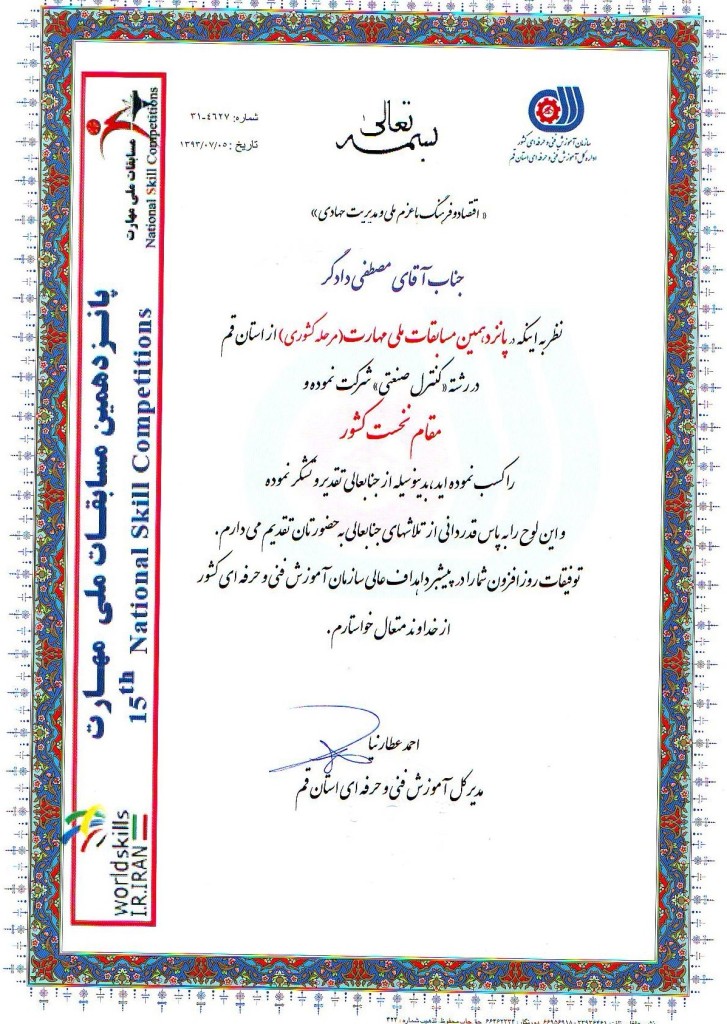 بسمه تعالی
سازمان آموزش فنی و حرفه ای کشور
اداره کل آموزش فنی و حرفه ای استان قم
شماره: ۳۱-۴۶۲۷
تاریخ: ۱۳۹۳/۰۷/۰۵
«اقتصاد و فرهنگ با عزم ملی و مدیریت جهادی»
جناب آقای مصطفی دادگر
نظر به اینکه در پانزدهمین مسابقات ملی مهارت (مرحله کشوری) از استان قم
در رشته «کنترل صنعتی» شرکت نموده و
مقام نخست کشور
را کسب نموده اید، بدینوسیله از جنابعالی تقدیر و تشکر نموده
و این لوح را به پاس قدردانی از تلاشهای جنابعالی به حضورتان تقدیم می دارم.
توفیقات روز افزون شما را در پیشبرد اهداف عالی سازمان آموزش فنی و حرفه ای کشور
از خداوند متعال خواستارم.
احمد عطارنیا
مدیرکل آموزش فنی و حرفه ای استان قم
مسابقات ملی مهارت
National Skill Competitions
پانزدهمین مسابقات ملی مهارت
15th National Skill Competitions
worldskills
I.R.IRAN